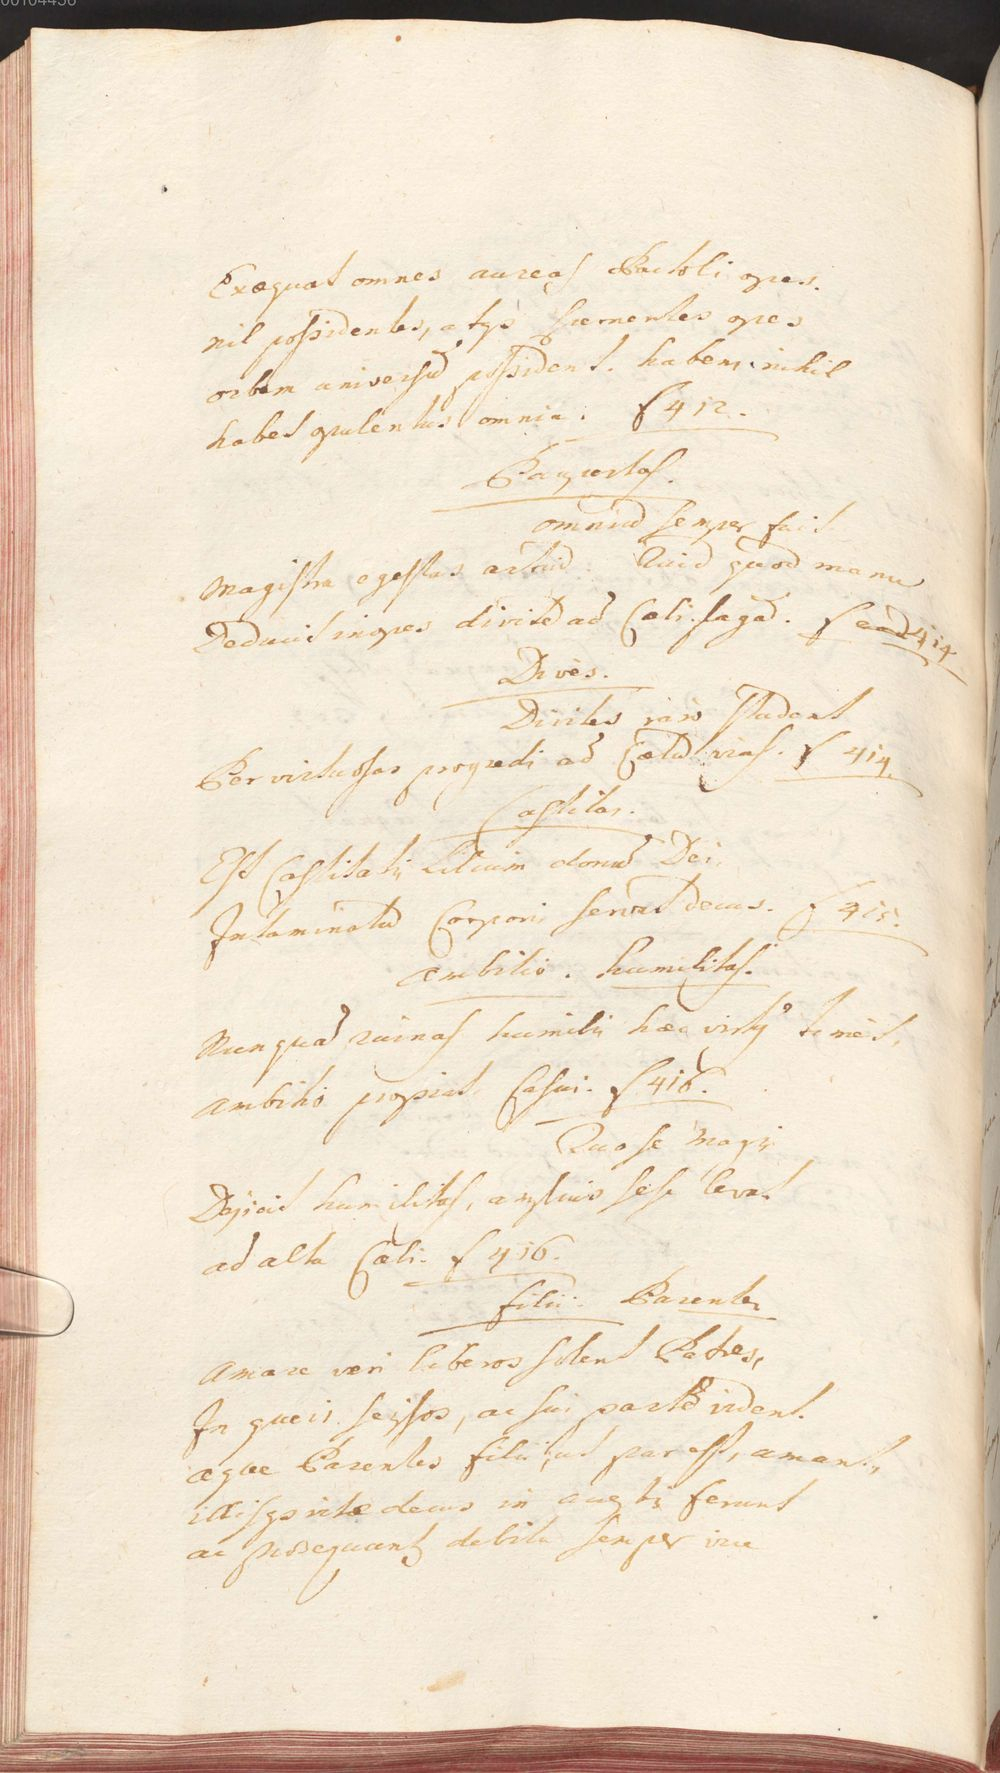 Exæquat omnes aureas Pactoli opes.
nil possidentes, atqs spernentes opes
orbem universũ possident. habens nihil
habet opulentus omnia. f 412.
Paupertas.
omniũ semper fuit
Magistra egestas artiũ. Quid quod manu
Deducit inopes divite ad Cæli plagã. f 414
Dives.
Divites rarò student
Per virtuosas progredi ad Cælũ vias. f 414.
Castitas.
Est Castitatis Lilium donũ Dei,
Intaminatũ Corporis servat decus. f 415.
Ambitio. humilitas.
Nunquã ruinas humilis hæc virtus timet,
Ambitio propiat Casui. f 416.
Quo se magis
Dejicit humilitas, amplius sese levat
ad alta Cæli. f 416.
filii. Parentes
Amare veri liberos solent Patres,
In queis seipsos, ac sui partẽ vident.
æque Parentes filii, ut par est, amant,
illisqs vitæ decus in
ac prosequuntur debita semper vice